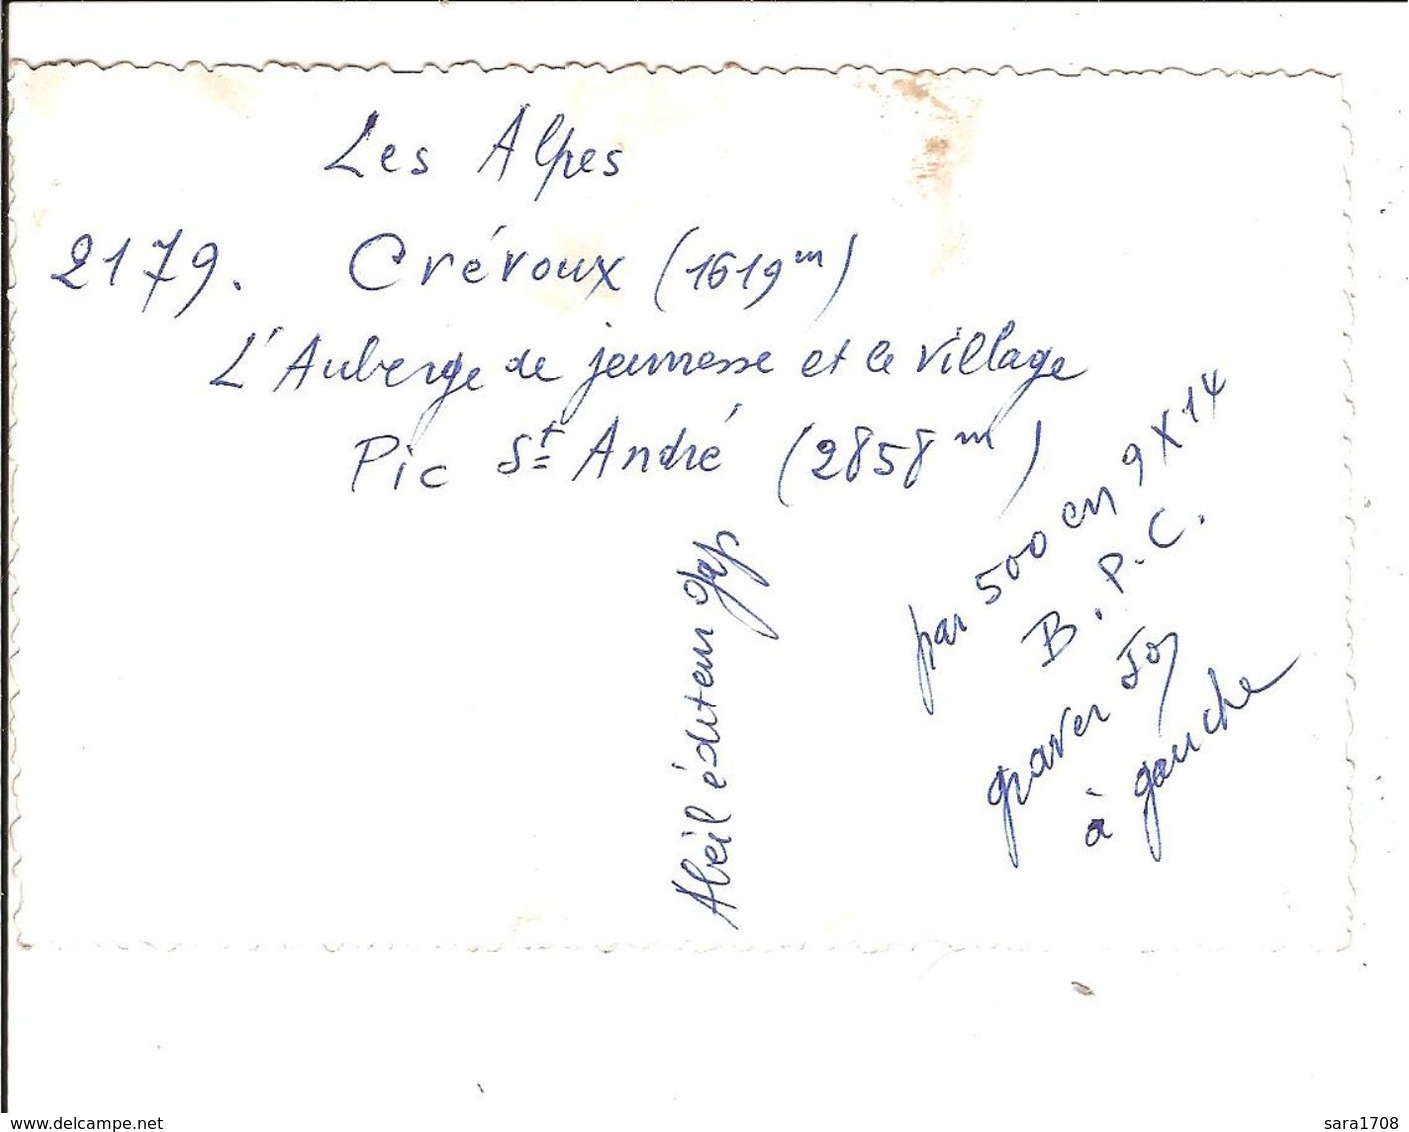 Les Alpes
2179. Crévoux (1619 m)
L'Auberge de jeunesse et le village
Pic St André (2858 m)
par 500 en 9 X 14
B. P. C.
graver Joy
à gauche
Abeil éditeur gap
www.delcampe.net
sara1708